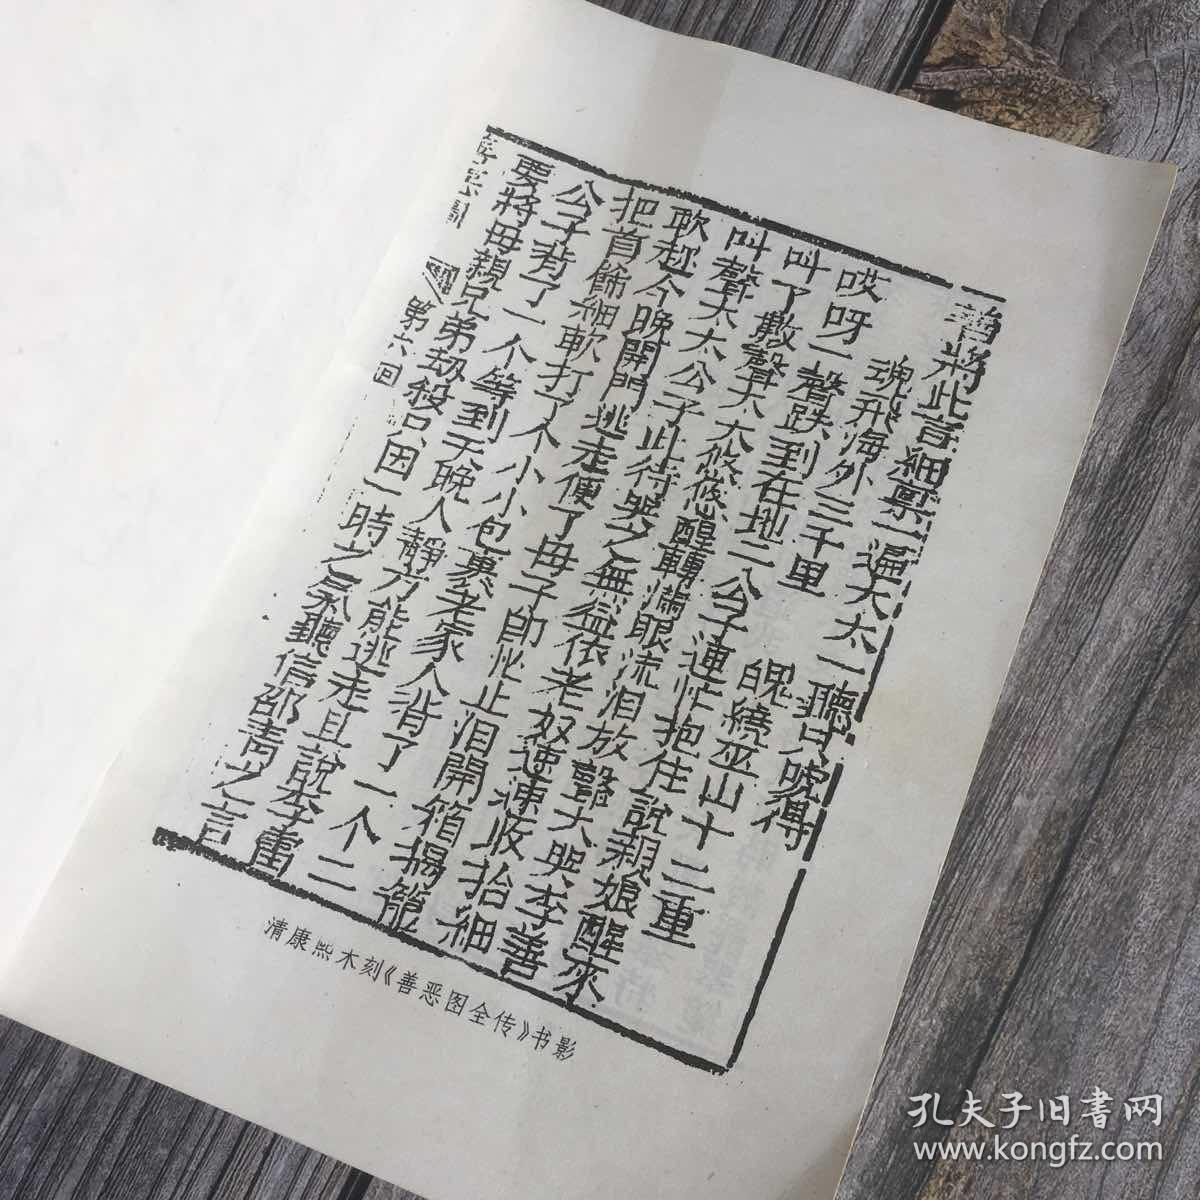 善將此言細禀一遍太太一聽只唬得
魂飛海外三千里　魄繞巫山十二重
哎呀一聲跌到在地二公子連忙抱住說親娘醒來
叫了数聲太太悠悠醒轉滿眼流泪放聲大哭李善
叫聲太太公子此時哭之無益依老奴速速收拾細
軟趁今晚開門逃走便了母子即此止泪開箱揭籠
把首飾細軟打了个小小包裹老家人背了一个二
公子背了一个等到天晚人靜方能逃走且說李雷
要將母親兄弟劫殺只因一時之氣聽信邵青之言
善惡圖
第六回
清康熙木刻《善恶图全传》书影
孔夫子旧書网
www.kongfz.com